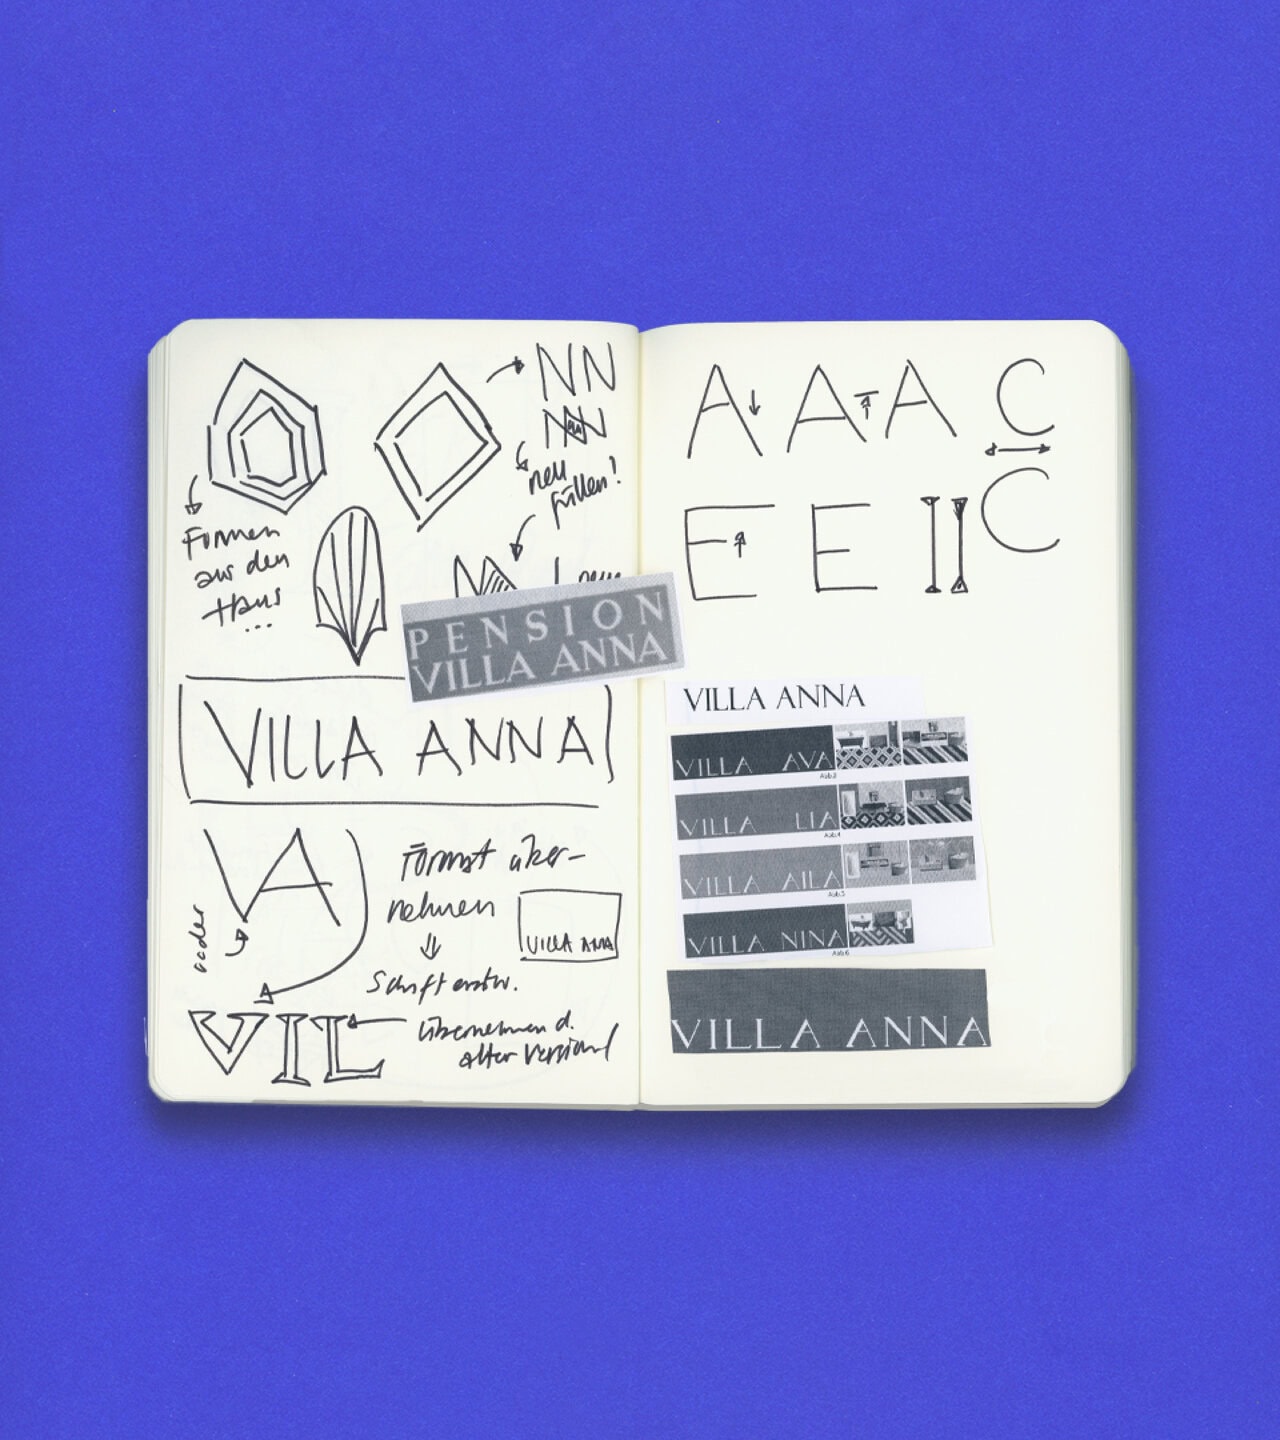 NN
NN
neu
füllen!
Formen
aus dem
Haus
...
PENSION
VILLA ANNA
VILLA ANNA
VA
oder
Format über-
nehmen
VILLA ANNA
Schrift
VIL
übernehmen d.
alten Version
A A A C
C
E E II
VILLA ANNA
VILLA AVA
Abb.2
VILLA LIA
Abb.4
VILLA AILA
Abb.5
VILLA NINA
Abb.6
VILLA ANNA